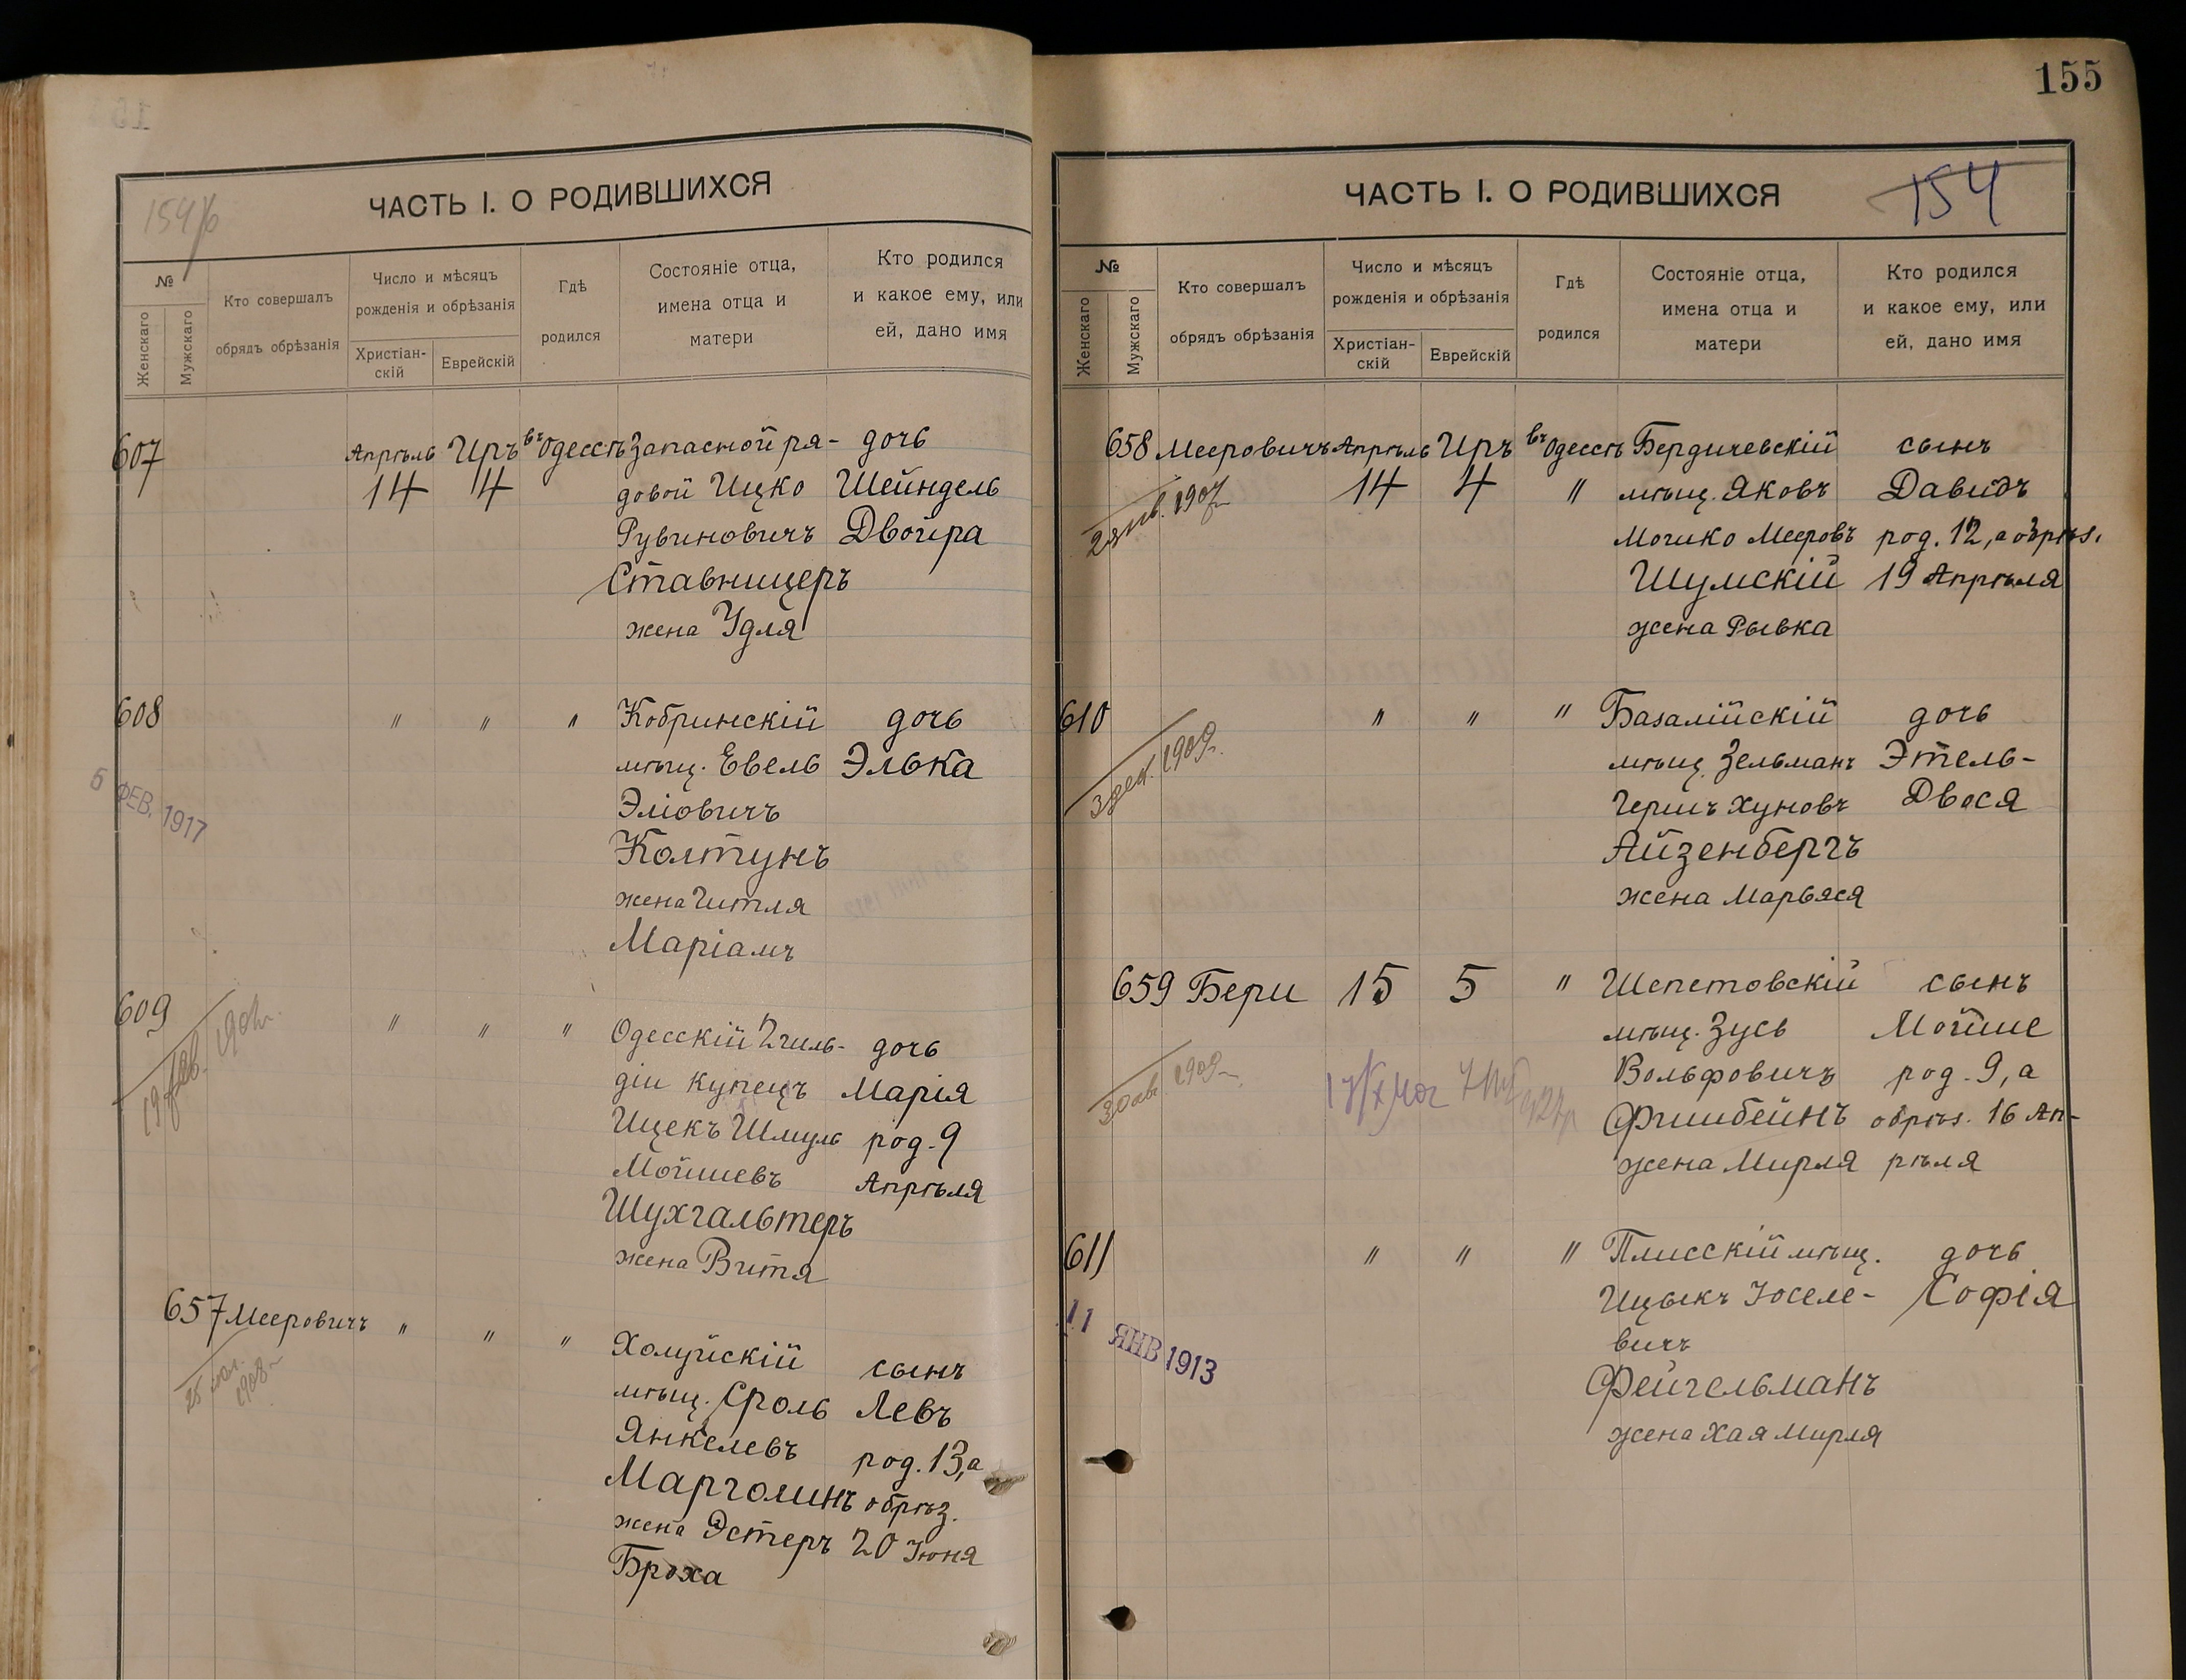 155
154/б
ЧАСТЬ I. О РОДИВШИХСЯ
№
Женскаго
Мужскаго
Кто совершалъ
обрядъ обрѣзанія
Число и мѣсяцъ
рожденія и обрѣзанія
Христіан-
скій
Еврейскій
Гдѣ
родился
Состояніе отца,
имена отца и
матери
Кто родился
и какое ему, или
ей, дано имя
607 Апрѣль Иръ въ Одессѣ Запасной ря- дочь
14 4 довой Ицко Шейндель
Рувиновичъ Двойра
Ставницеръ
жена Удля
608 " " " Кобринскій дочь
мѣщ. Евель Элька
Эліовичъ
6 ФЕВ. 1917
Колтунъ
жена Гитля
Маріамъ
609 " " " Одесскій 2 гиль- дочь
діи купецъ Марія
19 фев.
Ицекъ Шмуль род. 9
Мойшевъ Апрѣля
Шухгальтеръ
жена Витя
657 Мееровичъ " " " Холуйскій сынъ
мѣщ. Сроль Левъ
1908 г.
Янкелевъ род. 13, а
Марголинъ обрѣз.
жена Эстеръ 20 Іюня
Броха
ЧАСТЬ I. О РОДИВШИХСЯ
154
№
Женскаго
Мужскаго
Кто совершалъ
обрядъ обрѣзанія
Число и мѣсяцъ
рожденія и обрѣзанія
Христіан-
скій
Еврейскій
Гдѣ
родился
Состояніе отца,
имена отца и
матери
Кто родился
и какое ему, или
ей, дано имя
658 Мееровичъ Апрѣль Иръ въ Одессѣ Бердичевскій сынъ
14 4 " мѣщ. Яковъ Давидъ
Мошко Мееровъ род. 12, а обрѣз.
Шумскій 19 Апрѣля
жена Рывка
610 " " " Базалійскій дочь
мѣщ. Зельманъ Этель-
3 дек. 1909 г.
Гершъ Хуновъ Двося
Айзенбергъ
жена Марьяся
659 Бери 15 5 " Шепетовскій сынъ
мѣщ. Зусь Мойше
1909
Вольфовичъ род. 9, а
Фишбейнъ обрѣз. 16 Ап-
жена Мирля рѣля
611 " " " Плисскій мѣщ. дочь
Ицыкъ Іоселе- Софія
11 ЯНВ 1913
вичъ
Фейгельманъ
жена Хая Мирля